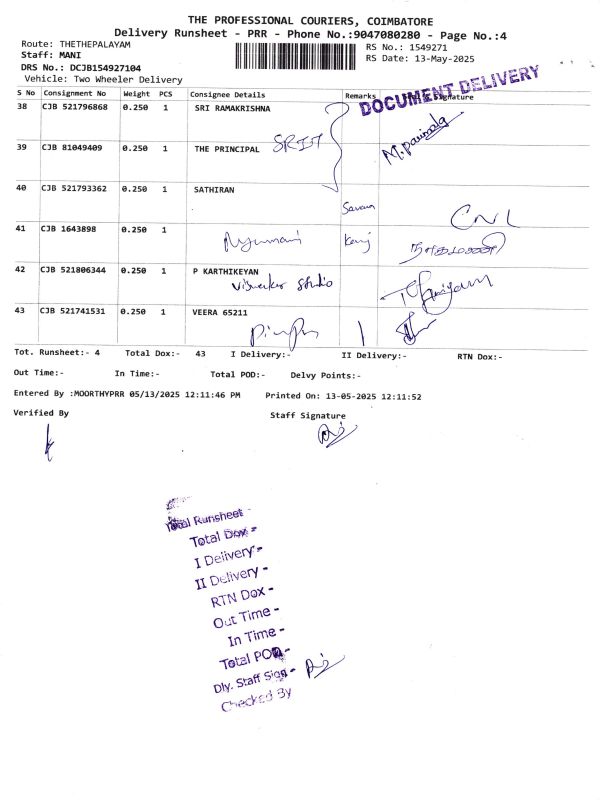 THE PROFESSIONAL COURIERS, COIMBATORE
Delivery Runsheet - PRR - Phone No.:9047080280 - Page No.:4
Route: THETHEPALAYAM
Staff: MANI
RS No.: 1549271
DRS No.: DCJB154927104
RS Date: 13-May-2025
Vehicle: Two Wheeler Delivery
DOCUMENT DELIVERY
S No Consignment No Weight PCS Consignee Details Remarks Signature
38 CJB 521796868 0.250 1 SRI RAMAKRISHNA
39 CJB 81049409 0.250 1 THE PRINCIPAL SRIT M.Parimala
40 CJB 521793362 0.250 1 SATHIRAN
41 CJB 1643898 0.250 1
நாகமணி
42 CJB 521806344 0.250 1 P KARTHIKEYAN
Studio
43 CJB 521741531 0.250 1 VEERA 65211
Tot. Runsheet:- 4 Total Dox:- 43 I Delivery:- II Delivery:- RTN Dox:-
Out Time:- In Time:- Total POD:- Delvy Points:-
Entered By :MOORTHYPRR 05/13/2025 12:11:46 PM Printed On: 13-05-2025 12:11:52
Verified By Staff Signature
Total Runsheet -
Total Dox -
I Delivery -
II Delivery -
RTN Dox -
Out Time -
In Time -
Total POD -
Dly. Staff Sign -
Checked By